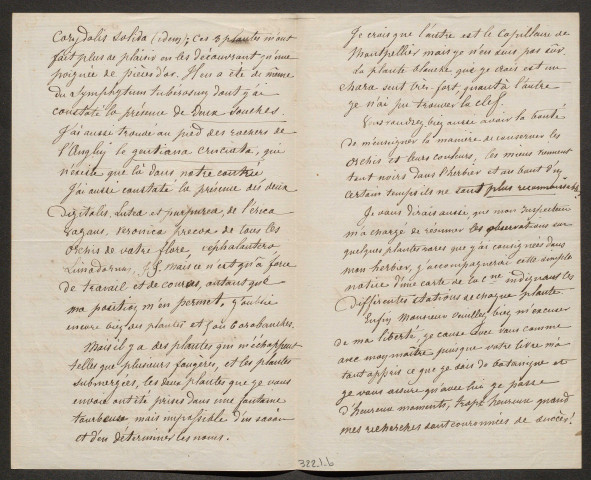 Corydalis Solida (idem); Ces 3 plantes m'ont
fait plus de plaisir en les découvrant qu'une
poignée de pièces d'or. Il en a été de même
du Symphytum tuberosum dont j'ai
constaté la présence de deux souches.
J'ai aussi trouvé au pied des rochers de
l'Anglin le gentiana cruciata, qui
n'existe que là dans notre contrée
J'ai aussi constaté la présence des deux
Digitalis, lutea et purpurea, de l'erica
vagans, veronica precox de tous les
orchis de votre flore cephalantera
Limodorum, J.J. mais ce n'est qu'à force
de travail et de courses, autant que
ma position m'en permet, j'oublie
encore bien des plantes et 5 ou 6 orobanches.
Mais il y a des plantes qui m'échappent
telles que plusieurs fougères, et les plantes
submergées, les deux plantes que je vous
envoie ont été prises dans une fontaine
tourbeuse mais impossible d'en savoir
et d'en déterminer les noms.
Je crois que l'autre est le Capillaire de
Montpellier mais je n'en suis pas sûr.
la plante blanche que je crois est un
chara sent très fort, quant à l'autre
je n'ai pu trouver la clef.
Vous voudrez bien aussi avoir la bonté
de m'enseigner la manière de conserver les
orchis et leurs couleurs, les miens viennent
tout noirs dans l'herbier et au bout d'un
certain temps ils ne sont plus reconnaissables.
Je vous dirais aussi que mon Inspecteur
m'a chargé de résumer les observations sur
quelques plantes rares que j'ai consignées dans
mon herbier, j'accompagnerai cette simple
notice d'une carte de la Cne indiquant les
différentes stations de chaque plante.
Enfin Monsieur veuillez bien m'excuser
de ma liberté, je cause avec vous comme
avec mon maître puisque votre livre m'a
tant appris ce que je sais de botanique et
je vous assure qu'avec lui je passe
d'heureux moments, trop heureux quand
mes recherches sont couronnées de succès!
322.1.b